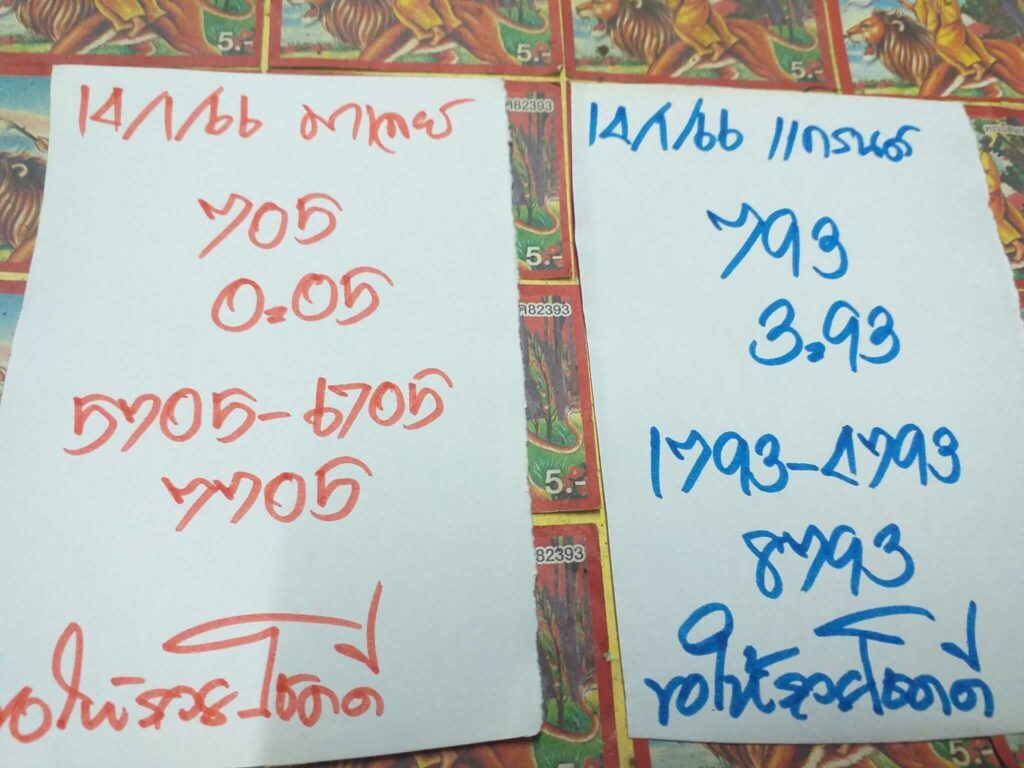 14/1/66 มาเลย์
705
0=05
5705-6705
7705
ขอให้รวยโชคดี
14/1/66 แกรนด์
793
3=93
1793-4793
8793
ขอให้รวยโชคดี
5.-
5.-
5.-
ศ82393
5.-
ศ82393
5.-
82393
5.-